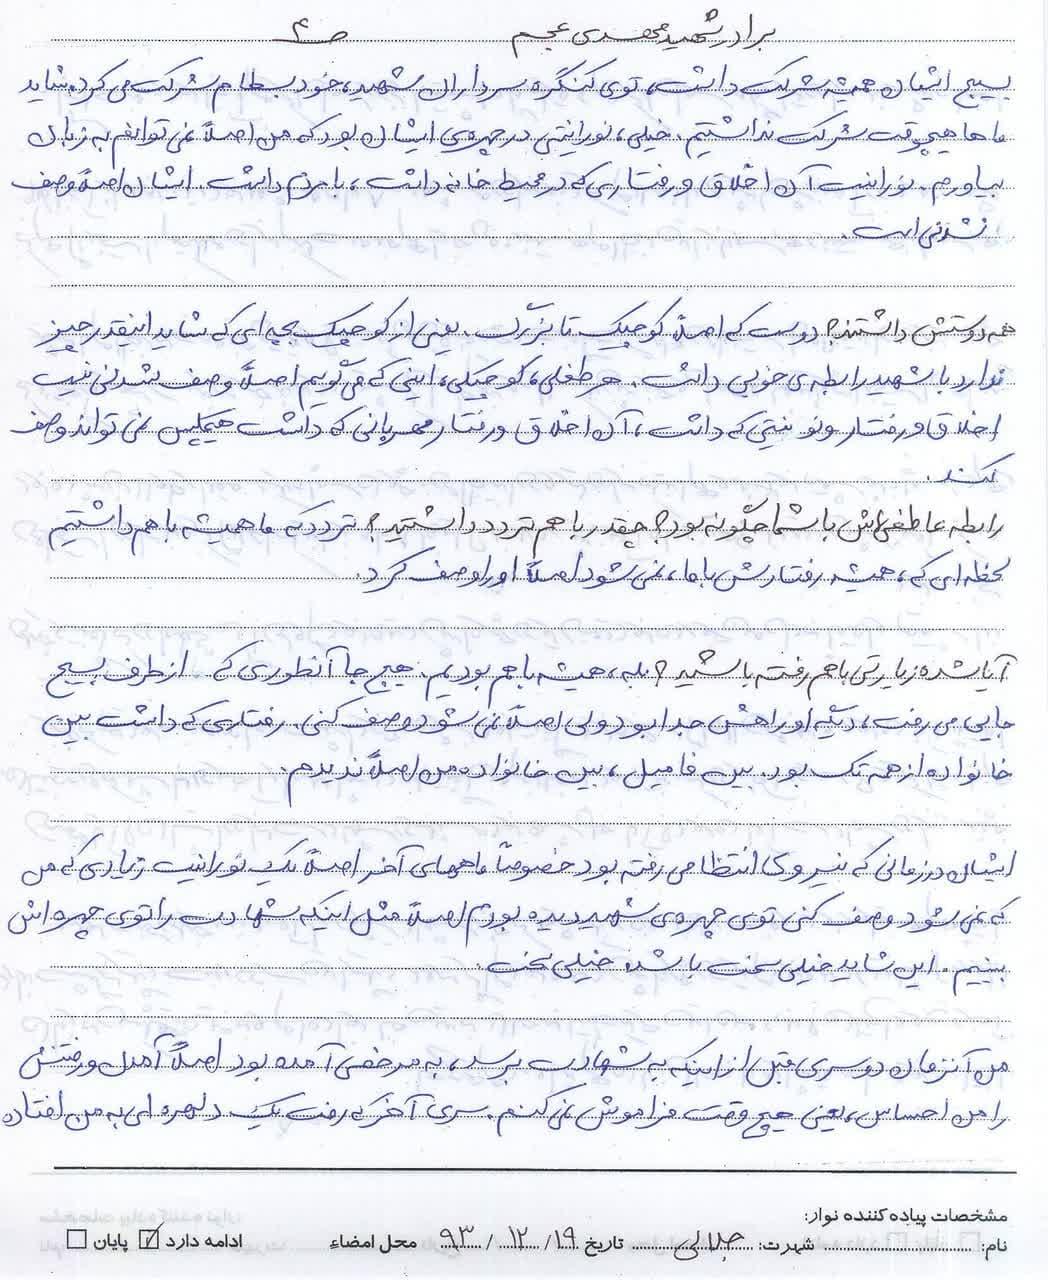 برادر شهید مهدی عجم ص ۴
بسیج ایشان همیشه شرکت داشت، توی کنگره سرداران شهید، خود بسطام شرکت می کرد. شاید
ماها هیچوقت شرکت نداشتیم. خیلی، نورانیتی در چهره ی ایشان بود که من اصلاً نمی توانم به زبان
بیاورم. نورانیت آن اخلاق و رفتاری که در محیط خانه داشت، با مردم داشت. ایشان اصلاً وصف
نشدنی است.
دوستش داشتند؟ دوست که اصلاً کوچیک تا بزرگ. یعنی از کوچیک بچه ای که شاید اینقدر چیز
ندارد با شهید رابطه ی خوبی داشت. هر طفلی، کوچیکی، اینی که می گویم اصلاً وصف شدنی نیست
اخلاق و رفتار و نورانیتی که داشت، آن اخلاق و رفتار مهربانی که داشت هیچکس نمی تواند وصف
کند.
رابطه عاطفی اش با شما چگونه بود؟ چقدر با هم تردد داشتید؟ تردد که ما همیشه با هم داشتیم
لحظه ای که، همیشه رفتارش با ما، نمی شود اصلاً او را وصف کرد.
آیا شده زیارتی با هم رفته باشید؟ بله، همیشه با هم بودیم. هیچ جا آنطوری که از طرف بسیج
جایی می رفت، دیگه او راهش جدا بود ولی اصلاً نمی شود وصف کنی. رفتاری که داشت بین
خانواده از همه تک بود. بین فامیل، بین خانواده من اصلاً ندیدم.
ایشان در زمانی که نیروی انتظامی رفته بود خصوصاً ماههای آخر اصلاً یک نورانیت زیادی که من
که نمی شود وصف کنی توی چهره ی شهید دیده بودم اصلاً مثل اینکه شهادت را توی چهره اش
ببینیم. این شاید خیلی سخت باشد. خیلی سخت.
من آنزمان دوسری قبل از اینکه به شهادت برسد، به مرخصی آمده بود اصلاً آمدن و رفتنش
را من احساس، یعنی هیچ وقت فراموش نمی کنم. سری آخر که رفت یک دلهره ای به من افتاده
مشخصات پیاده کننده نوار:
نام: شهرت: جلالی تاریخ ۱۹/ ۱۲ / ۹۳ محل امضاء ادامه دارد ☑ پایان ☐